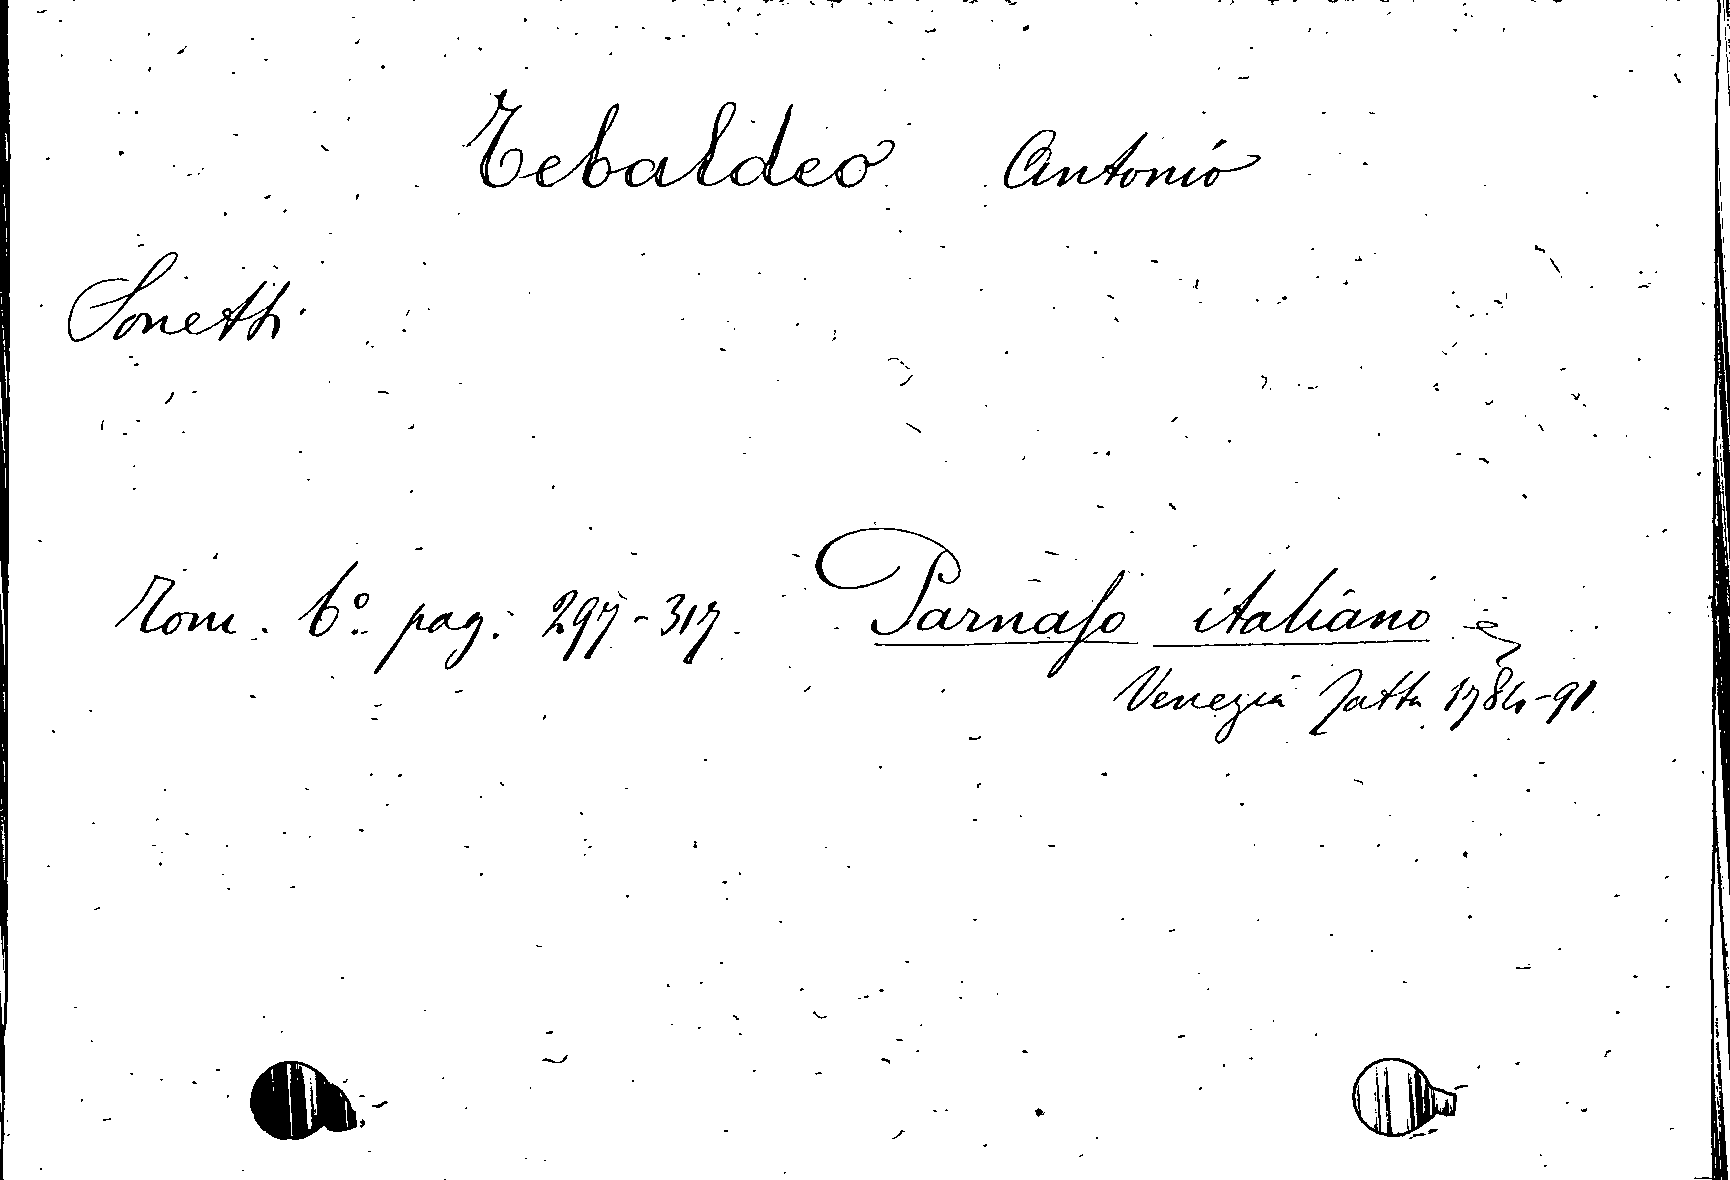 Tebaldeo Antonio
Sonetti
Tom. 6º pag. 297-317. Parnaso italiano
Venezia Zatta 1784-91